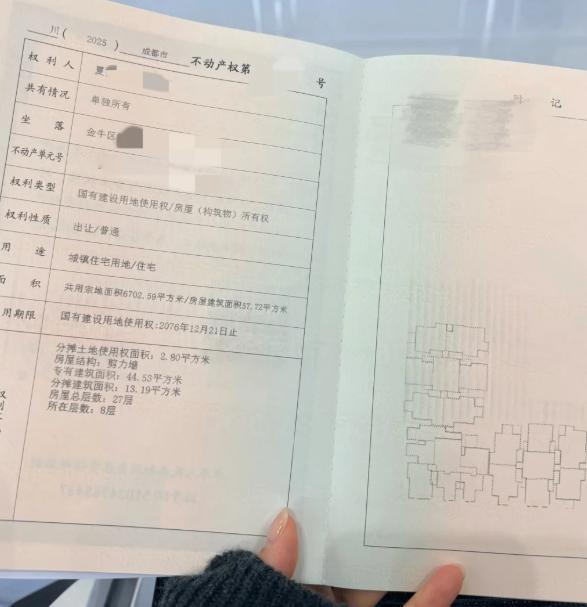 川( 2025 ) 成都市 不动产权第 号
权利人
共有情况 单独所有
坐落 金牛区
不动产单元号
权利类型 国有建设用地使用权/房屋(构筑物)所有权
权利性质 出让/普通
用途 城镇住宅用地/住宅
面积 共用宗地面积6702.59平方米/房屋建筑面积57.72平方米
用期限 国有建设用地使用权:2076年12月21日止
分摊土地使用权面积:2.80平方米
房屋结构:剪力墙
专有建筑面积:44.53平方米
分摊建筑面积:13.19平方米
房屋总层数:27层
所在层数:8层
权
利
附 记